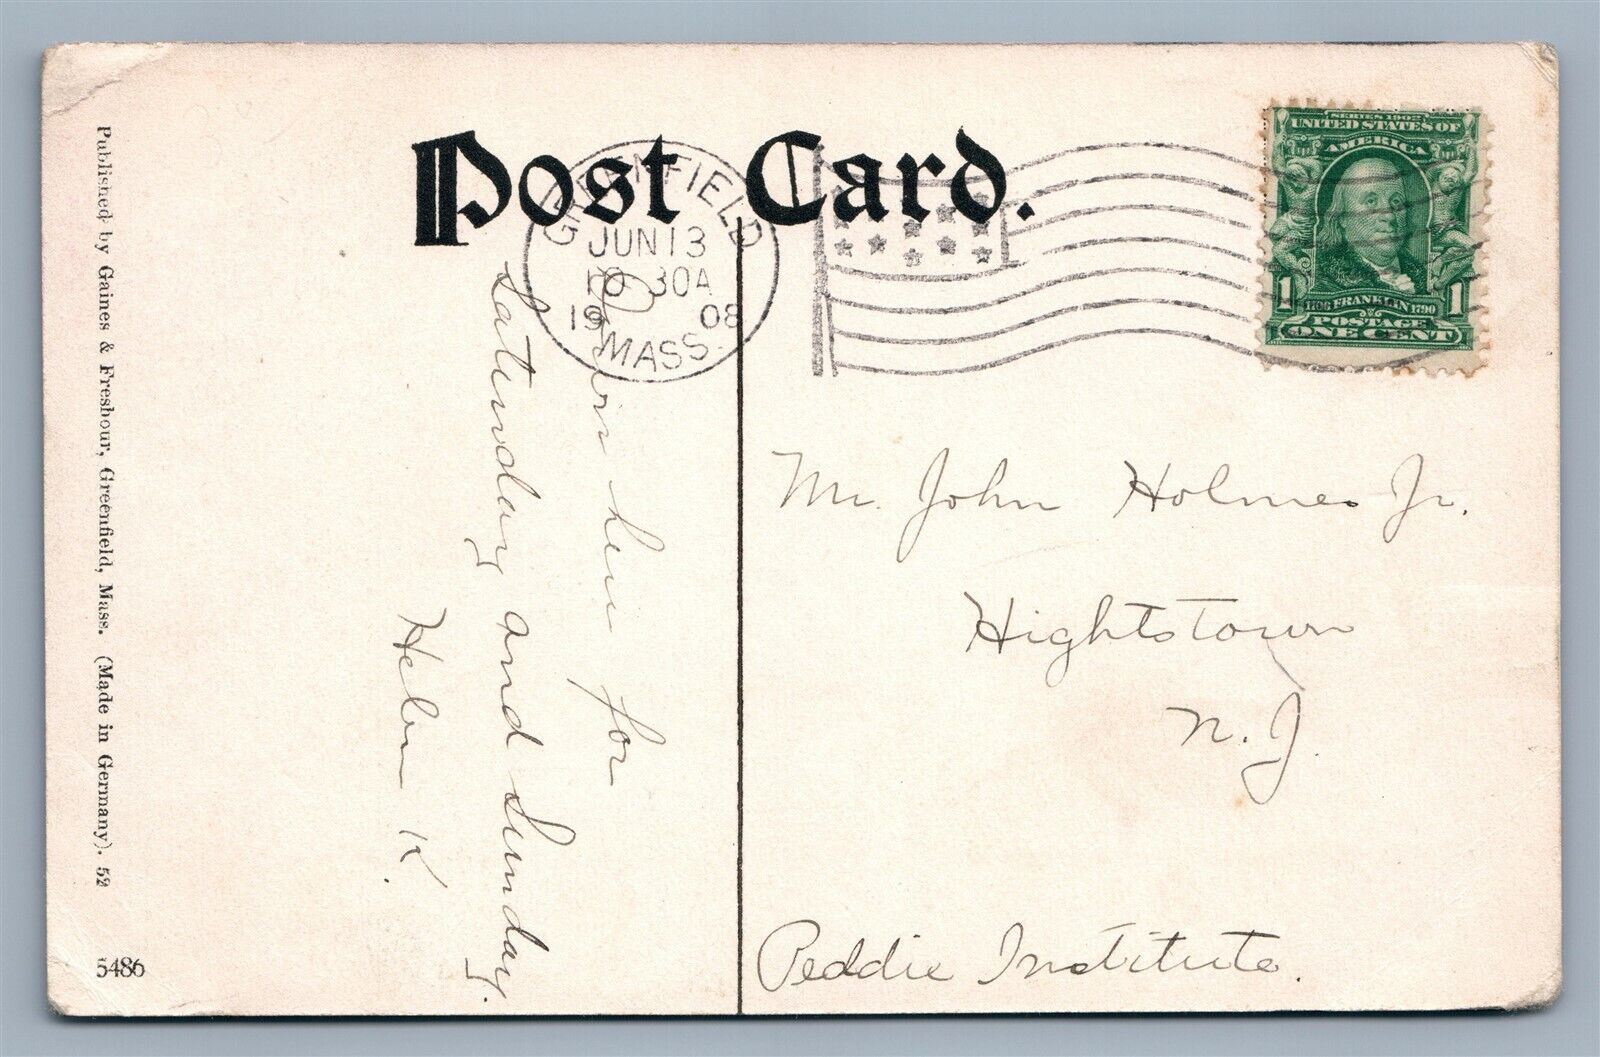 Post Card.
GREENFIELD
JUN 13
10 30A
1908
MASS.
SERIES 1902
UNITED STATES OF
AMERICA
1 1
1706 FRANKLIN 1790
POSTAGE
ONE CENT
Published by Gaines & Fresbour, Greenfield, Mass. (Made in Germany). 52
5486
Down here for
Saturday and Sunday.
Helen K.
Mr. John Holmes Jr.
Hightstown
N. J.
Peddie Institute.